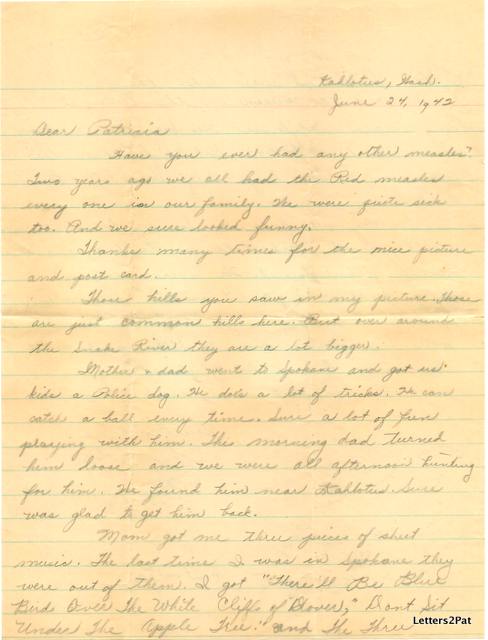 Kahlotus, Wash.
June 24, 1942
Dear Patricia
Have you ever had any other measles?
Two years ago we all had the Red measles
every one in our family. We were quite sick
too. And we sure looked funny.
Thanks many times for the nice picture
and post card.
Those hills you saw in my picture. Those
are just common hills here. But over around
the Snake River they are a lot bigger.
Mother & dad went to Spokane and got us
kids a Police dog. He does a lot of tricks. He can
catch a ball every time. Sure a lot of fun
playing with him. This morning dad turned
him loose and we were all afternoon hunting
for him. We found him near Kahlotus. Sure
was glad to get him back.
Mom got me three pieces of sheet
music. The last time I was in Spokane they
were out of them. I got "There'll Be Blue
Birds Over The White Cliffs of Dover," Dont Sit
Under The Apple Tree." and The Three
Letters2Pat